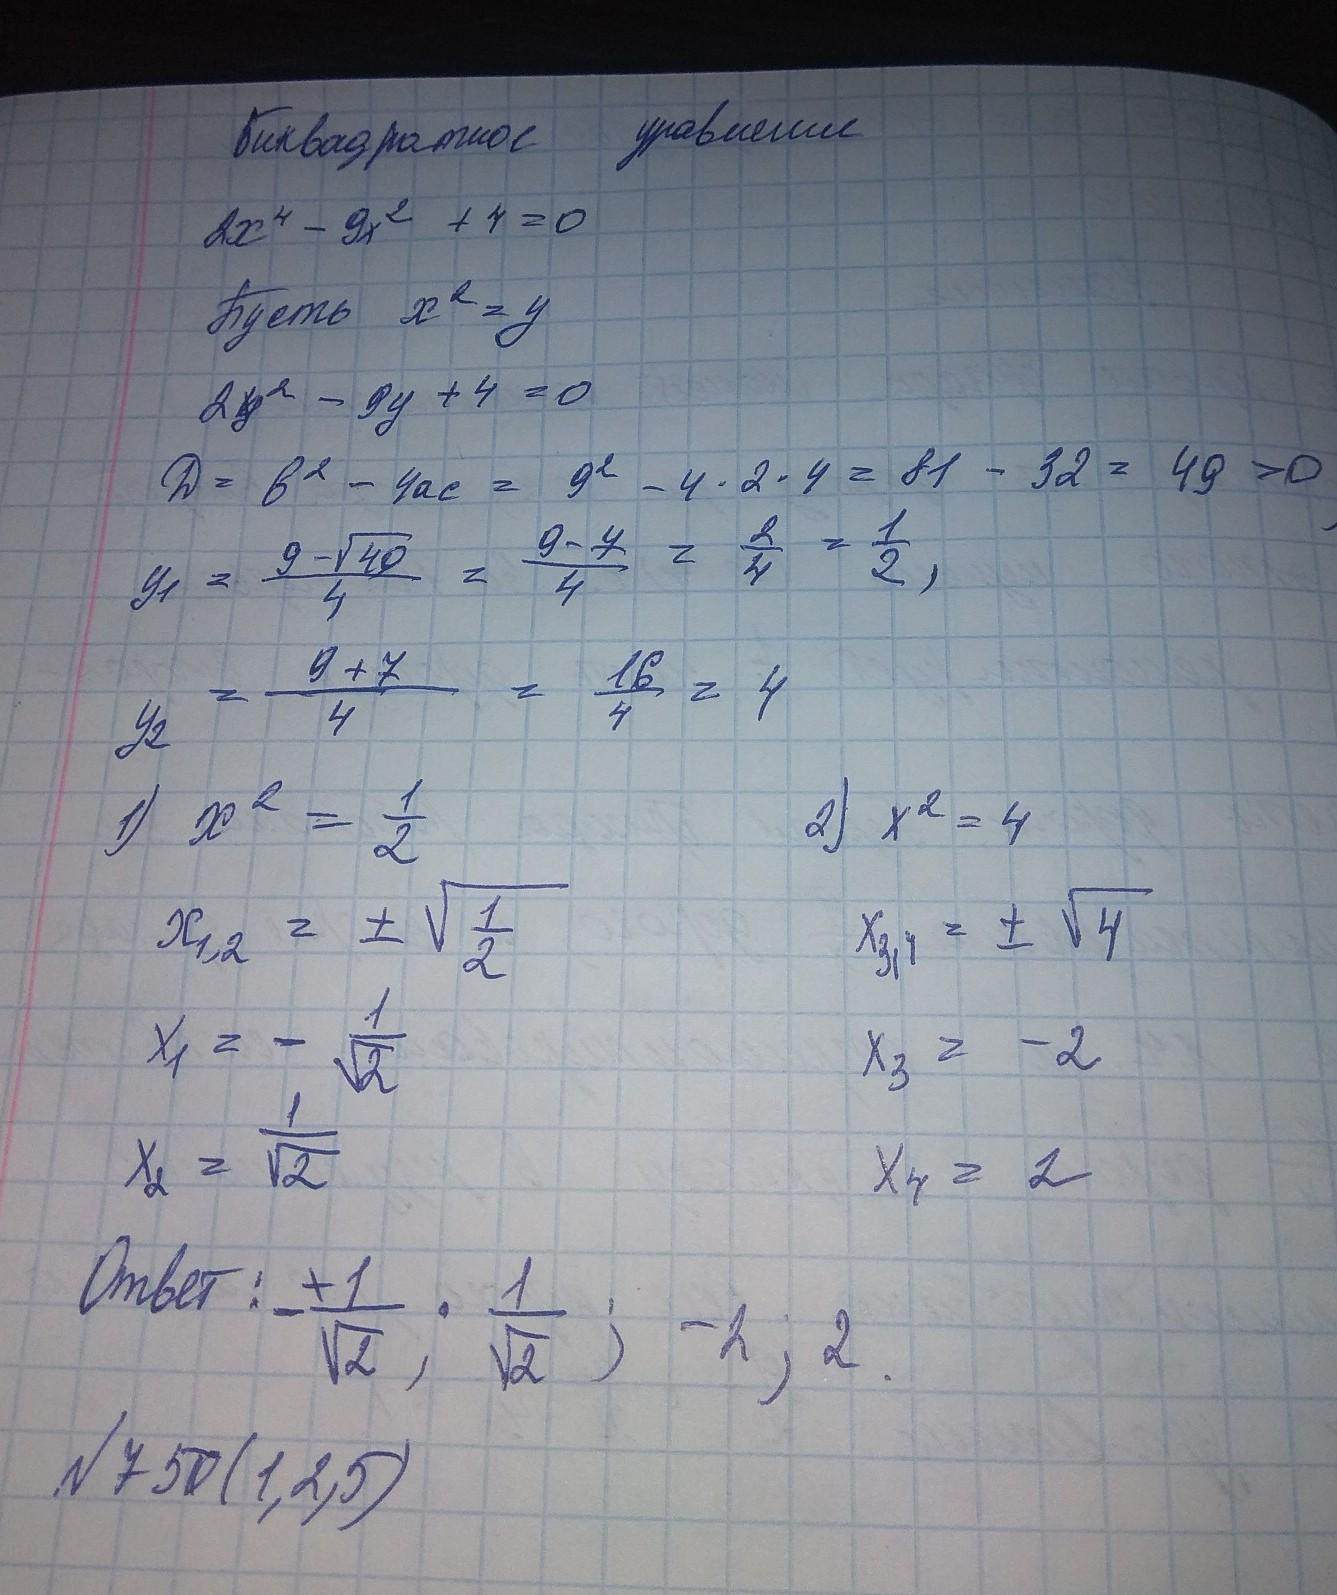 Биквадратное уравнение
2x⁴ - 9x² + 4 = 0
Пусть x² = y
2y² - 9y + 4 = 0
D = b² - 4ac = 9² - 4·2·4 = 81 - 32 = 49 > 0,
y₁ = (9-√49)/4 = (9-7)/4 = 2/4 = 1/2,
y₂ = (9+7)/4 = 16/4 = 4
1) x² = 1/2 2) x² = 4
x₁,₂ = ± √(1/2) x₃,₄ = ± √4
x₁ = - 1/√2 x₃ = -2
x₂ = 1/√2 x₄ = 2
Ответ: -1/√2; 1/√2; -2; 2.
№750(1,2,5)